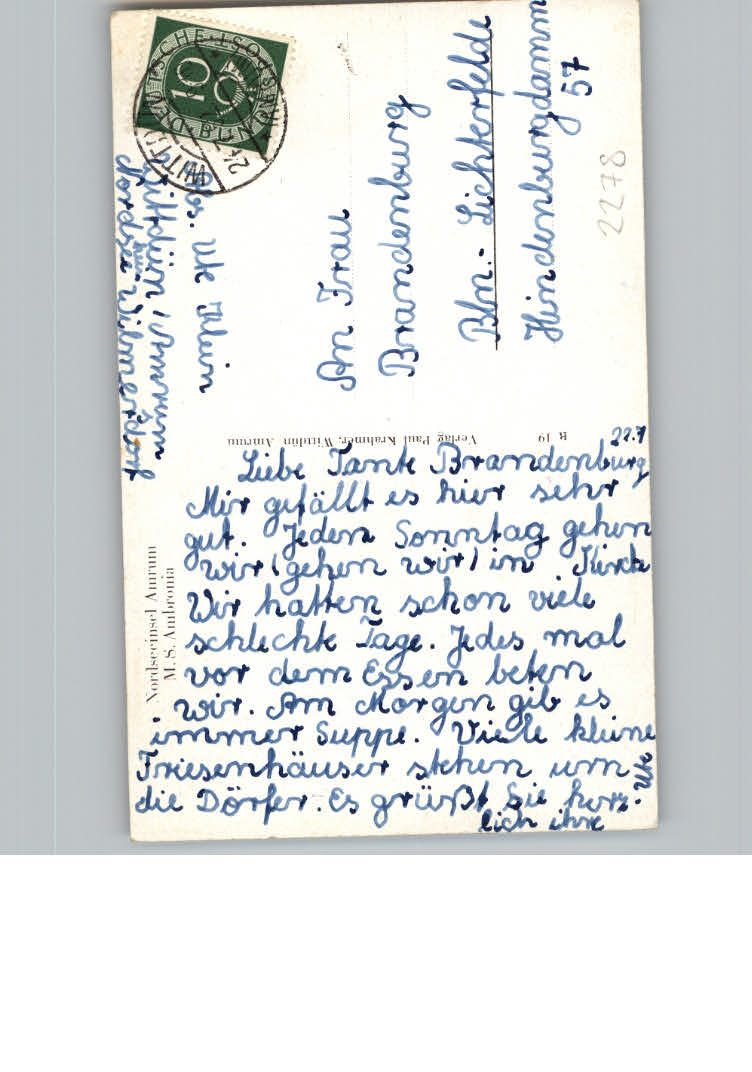 Nordseeinsel Amrum
M. S. Ambronia
22.7
Liebe Tante Brandenburg
Mir gefällt es hier sehr
gut. Jeden Sonntag gehen
wir (gehen wir) in Kirche
Wir hatten schon viele
schlechte Tage. Jedes mal
vor dem Essen beten
wir. Am Morgen gib es
immer Suppe. Viele kleine
Friesenhäuser stehen um
die Dörfer. Es grüßt Sie herz-
lich ihre Ute
Verlag Paul Krahmer, Wittdün Amrum
R 19
10
DEUTSCHE BUNDESPOST
WITTDÜN
Abs. Ute
Wittdün/Amrum
Nordsee
An Frau
Brandenburg
Bln.- Lichterfelde
Hindenburgdamm
57
2278